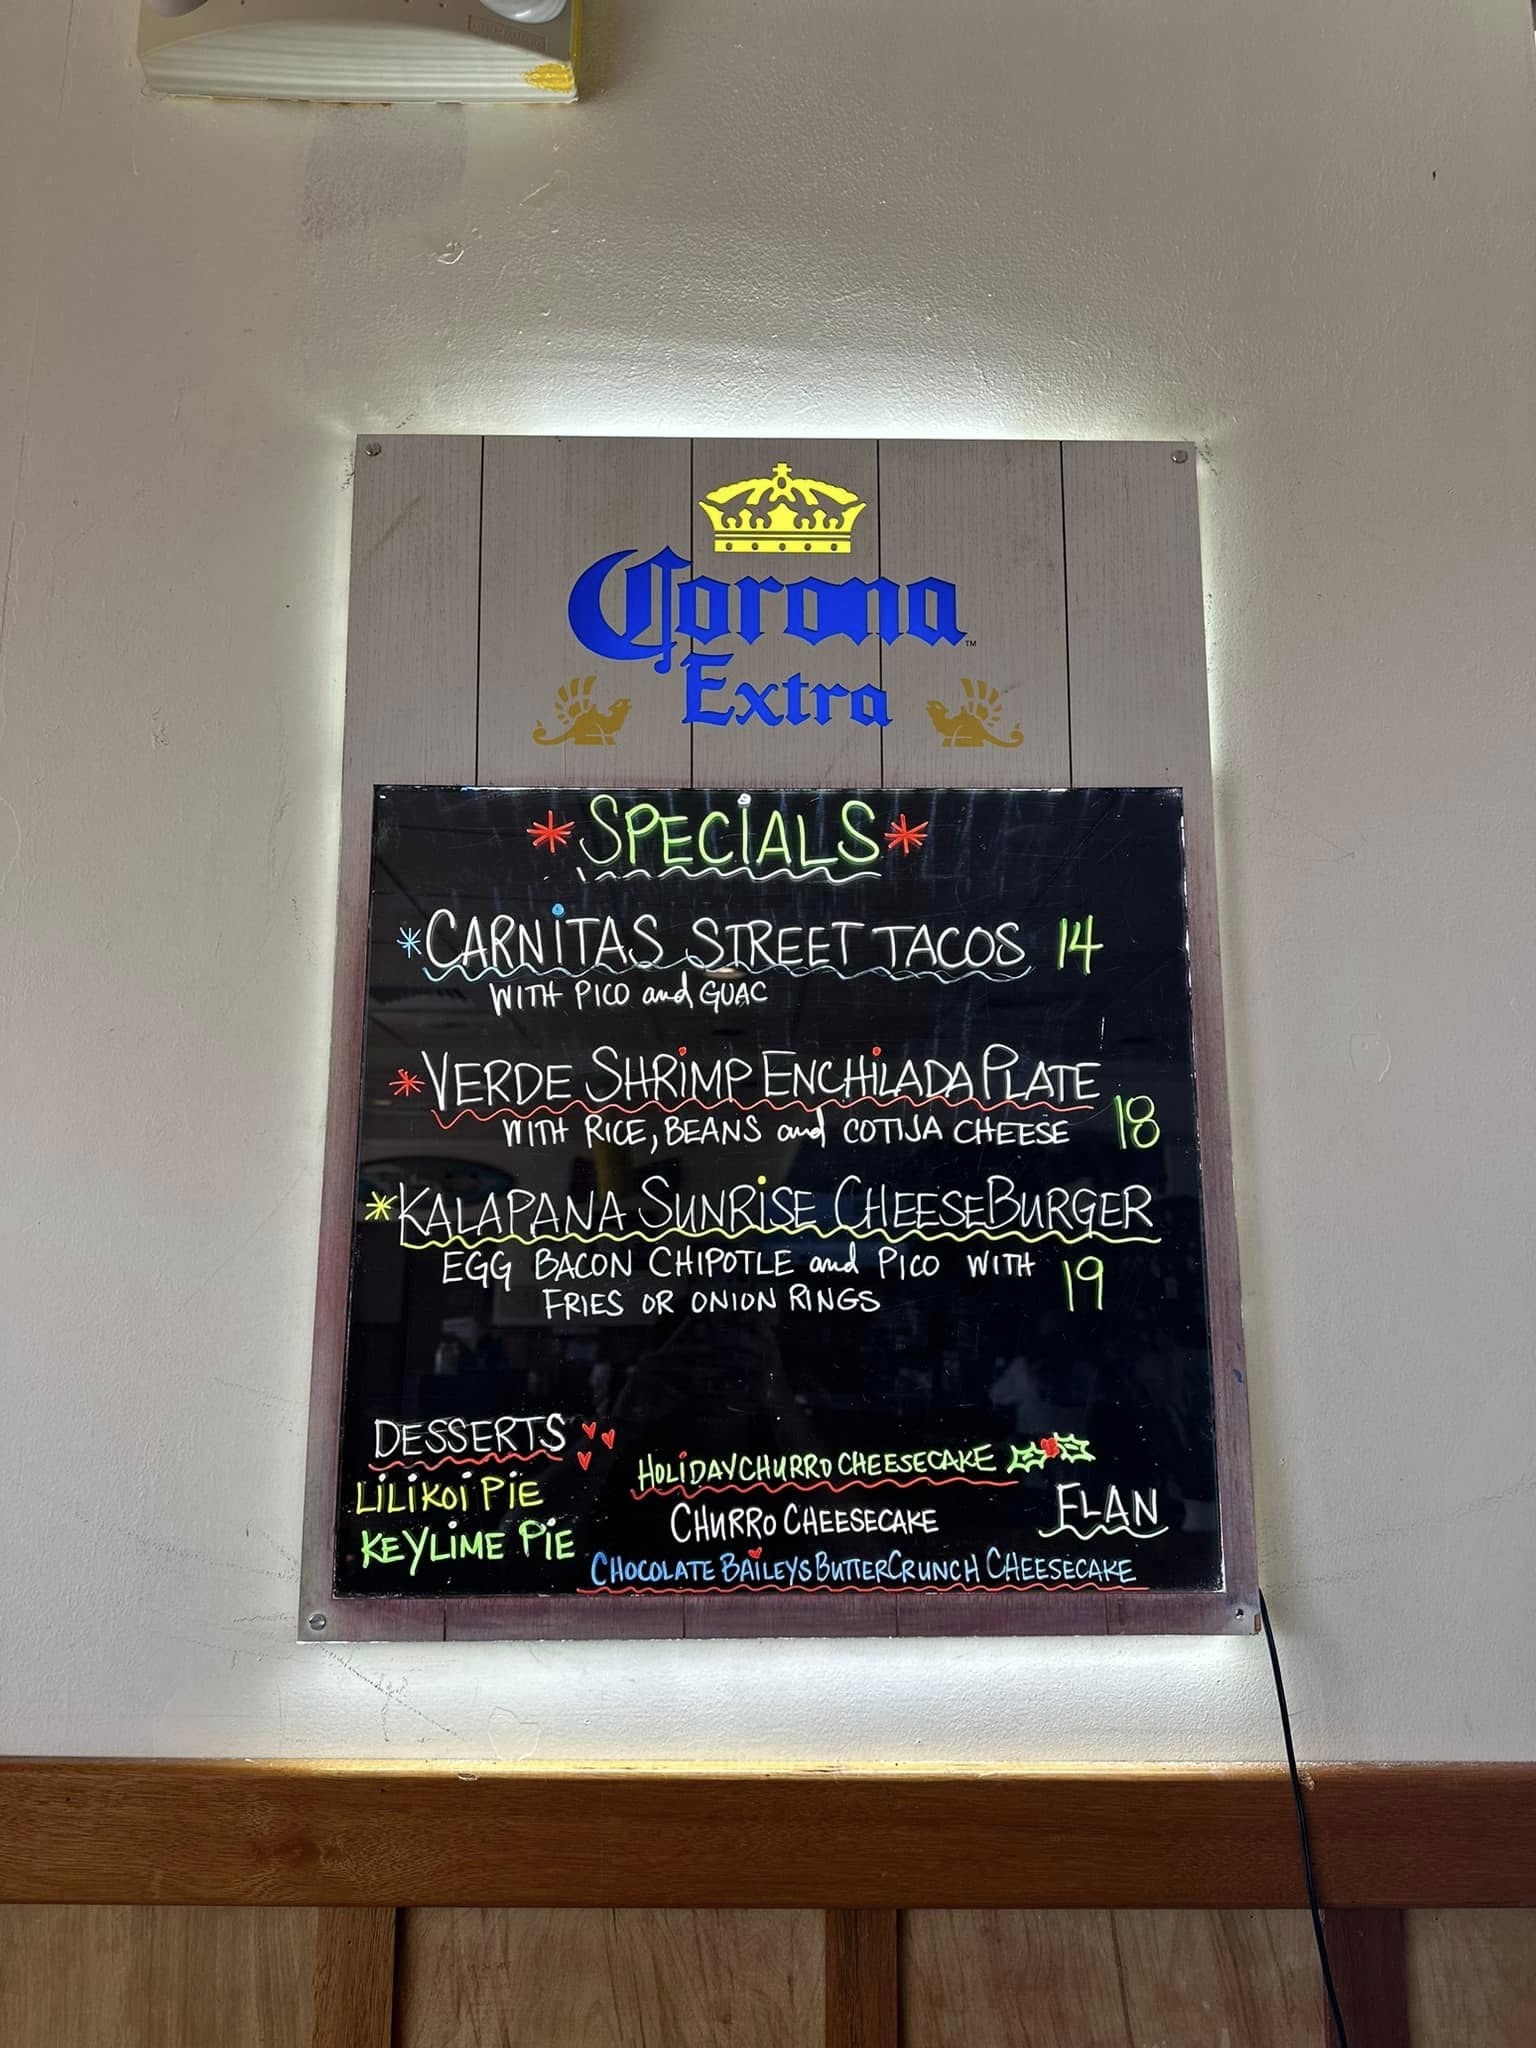 Corona
Extra
TM
*SPECIALS*
*CARNITAS STREET TACOS 14
WITH PICO and GUAC
*VERDE SHRIMP ENCHILADA PLATE
WITH RICE, BEANS and COTIJA CHEESE 18
*KALAPANA SUNRISE CHEESEBURGER
EGG BACON CHIPOTLE and PICO WITH 19
FRIES OR ONION RINGS
DESSERTS
LILIKOI PIE
KEYLIME PIE
HOLIDAY CHURRO CHEESECAKE
CHURRO CHEESECAKE
FLAN
CHOCOLATE BAILEYS BUTTERCRUNCH CHEESECAKE